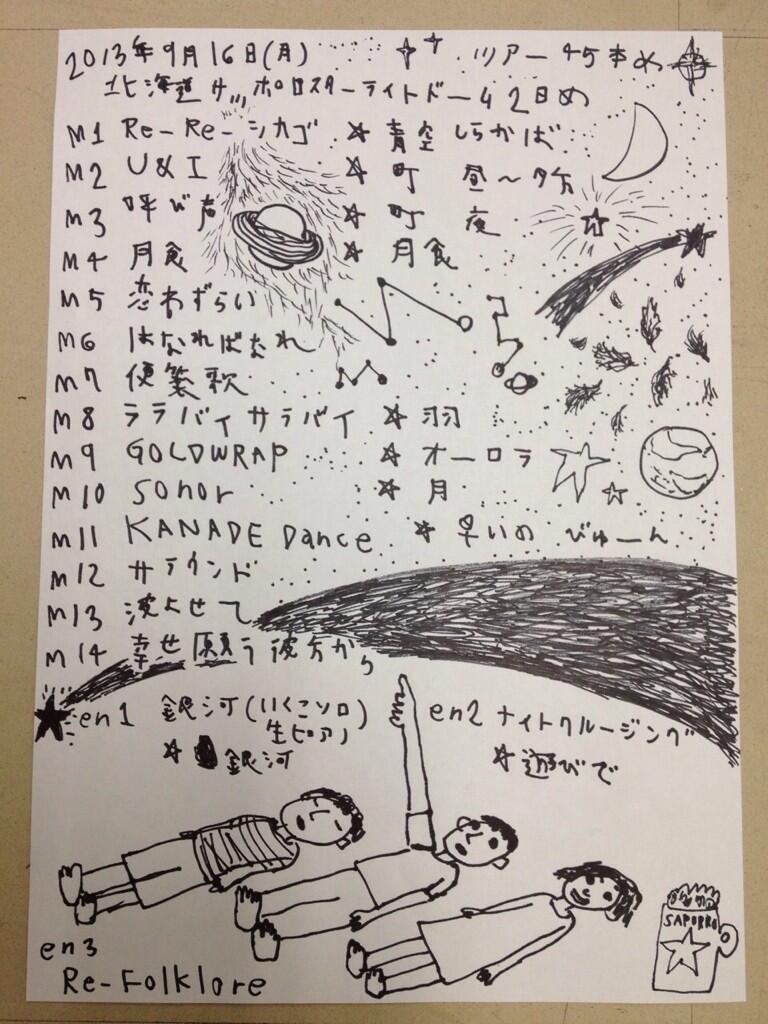 2013年9月16日(月) ツアー45本め
北海道サッポロスターライトドーム2日め
M1 Re-Re-シカゴ ☆ 青空 しらかば
M2 U&I ☆ 町 昼〜夕方
M3 呼び声 ☆ 町 夜
M4 月食 ☆ 月食
M5 恋わずらい
M6 はなればなれ
M7 便箋歌
M8 ララバイサラバイ ☆ 羽
M9 GOLDWRAP ☆ オーロラ
M10 sonor ☆ 月
M11 KANADE Dance ☆ 早いの びゅーん
M12 サラウンド
M13 波よせて
M14 幸せ願う彼方から
en1 銀河(いくこソロ 生ピアノ)
☆ 銀河
en2 ナイトクルージング
☆ 遊びで
SAPORRO
en3
Re-Folklore